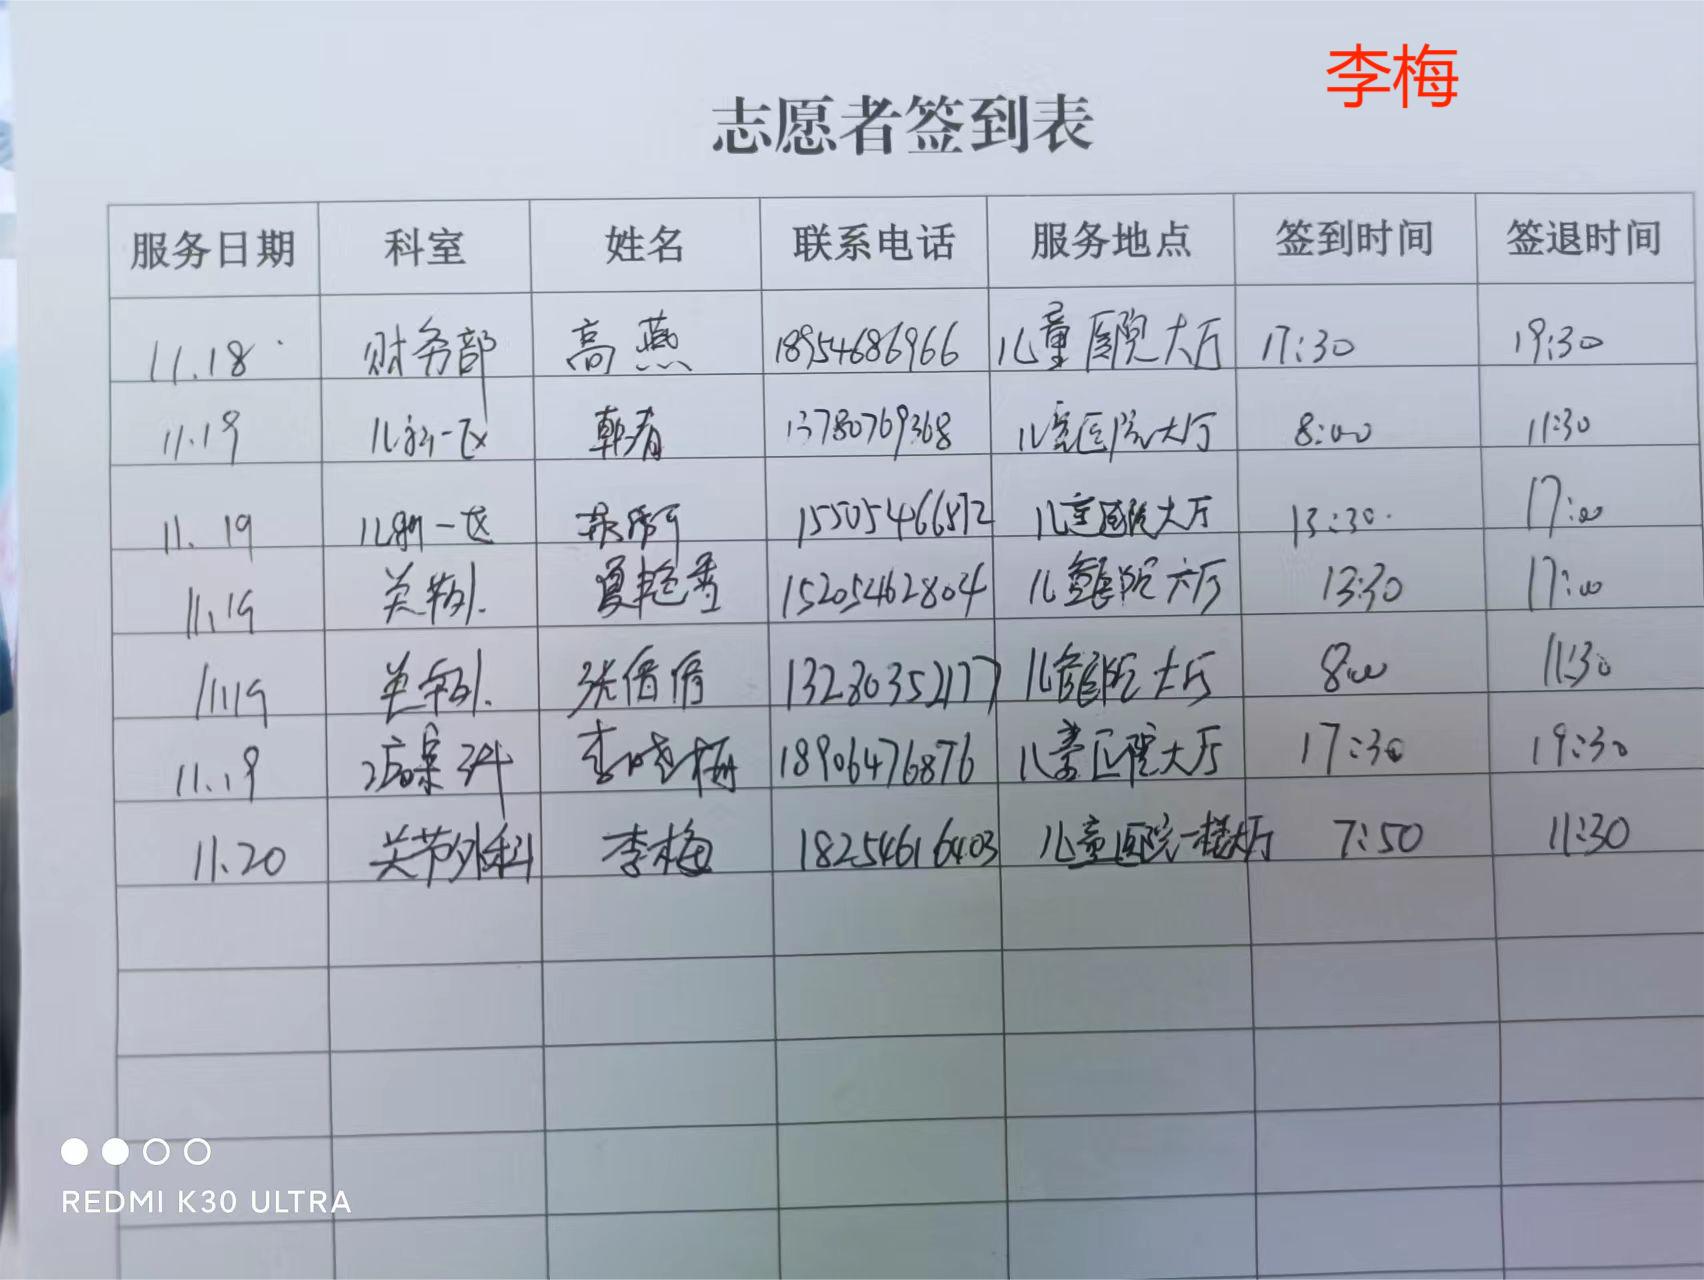 李梅
志愿者签到表
服务日期 科室 姓名 联系电话 服务地点 签到时间 签退时间
11.18 财务部 高燕 18954686966 儿童医院大厅 17:30 19:30
11.19 儿科一区 韩春 13780769368 儿童医院大厅 8:00 11:30
11.19 儿科一区 15505466812 儿童医院大厅 13:30 17:00
11.19 关节外 夏艳香 15205462804 儿童医院大厅 13:30 17:00
11.19 关节外 张倩倩 13280352177 儿童医院大厅 8:00 11:30
11.19 李晓梅 18906476876 儿童医院大厅 17:30 19:30
11.20 关节外科 李梅 18254616403 儿童医院一楼大厅 7:50 11:30
REDMI K30 ULTRA